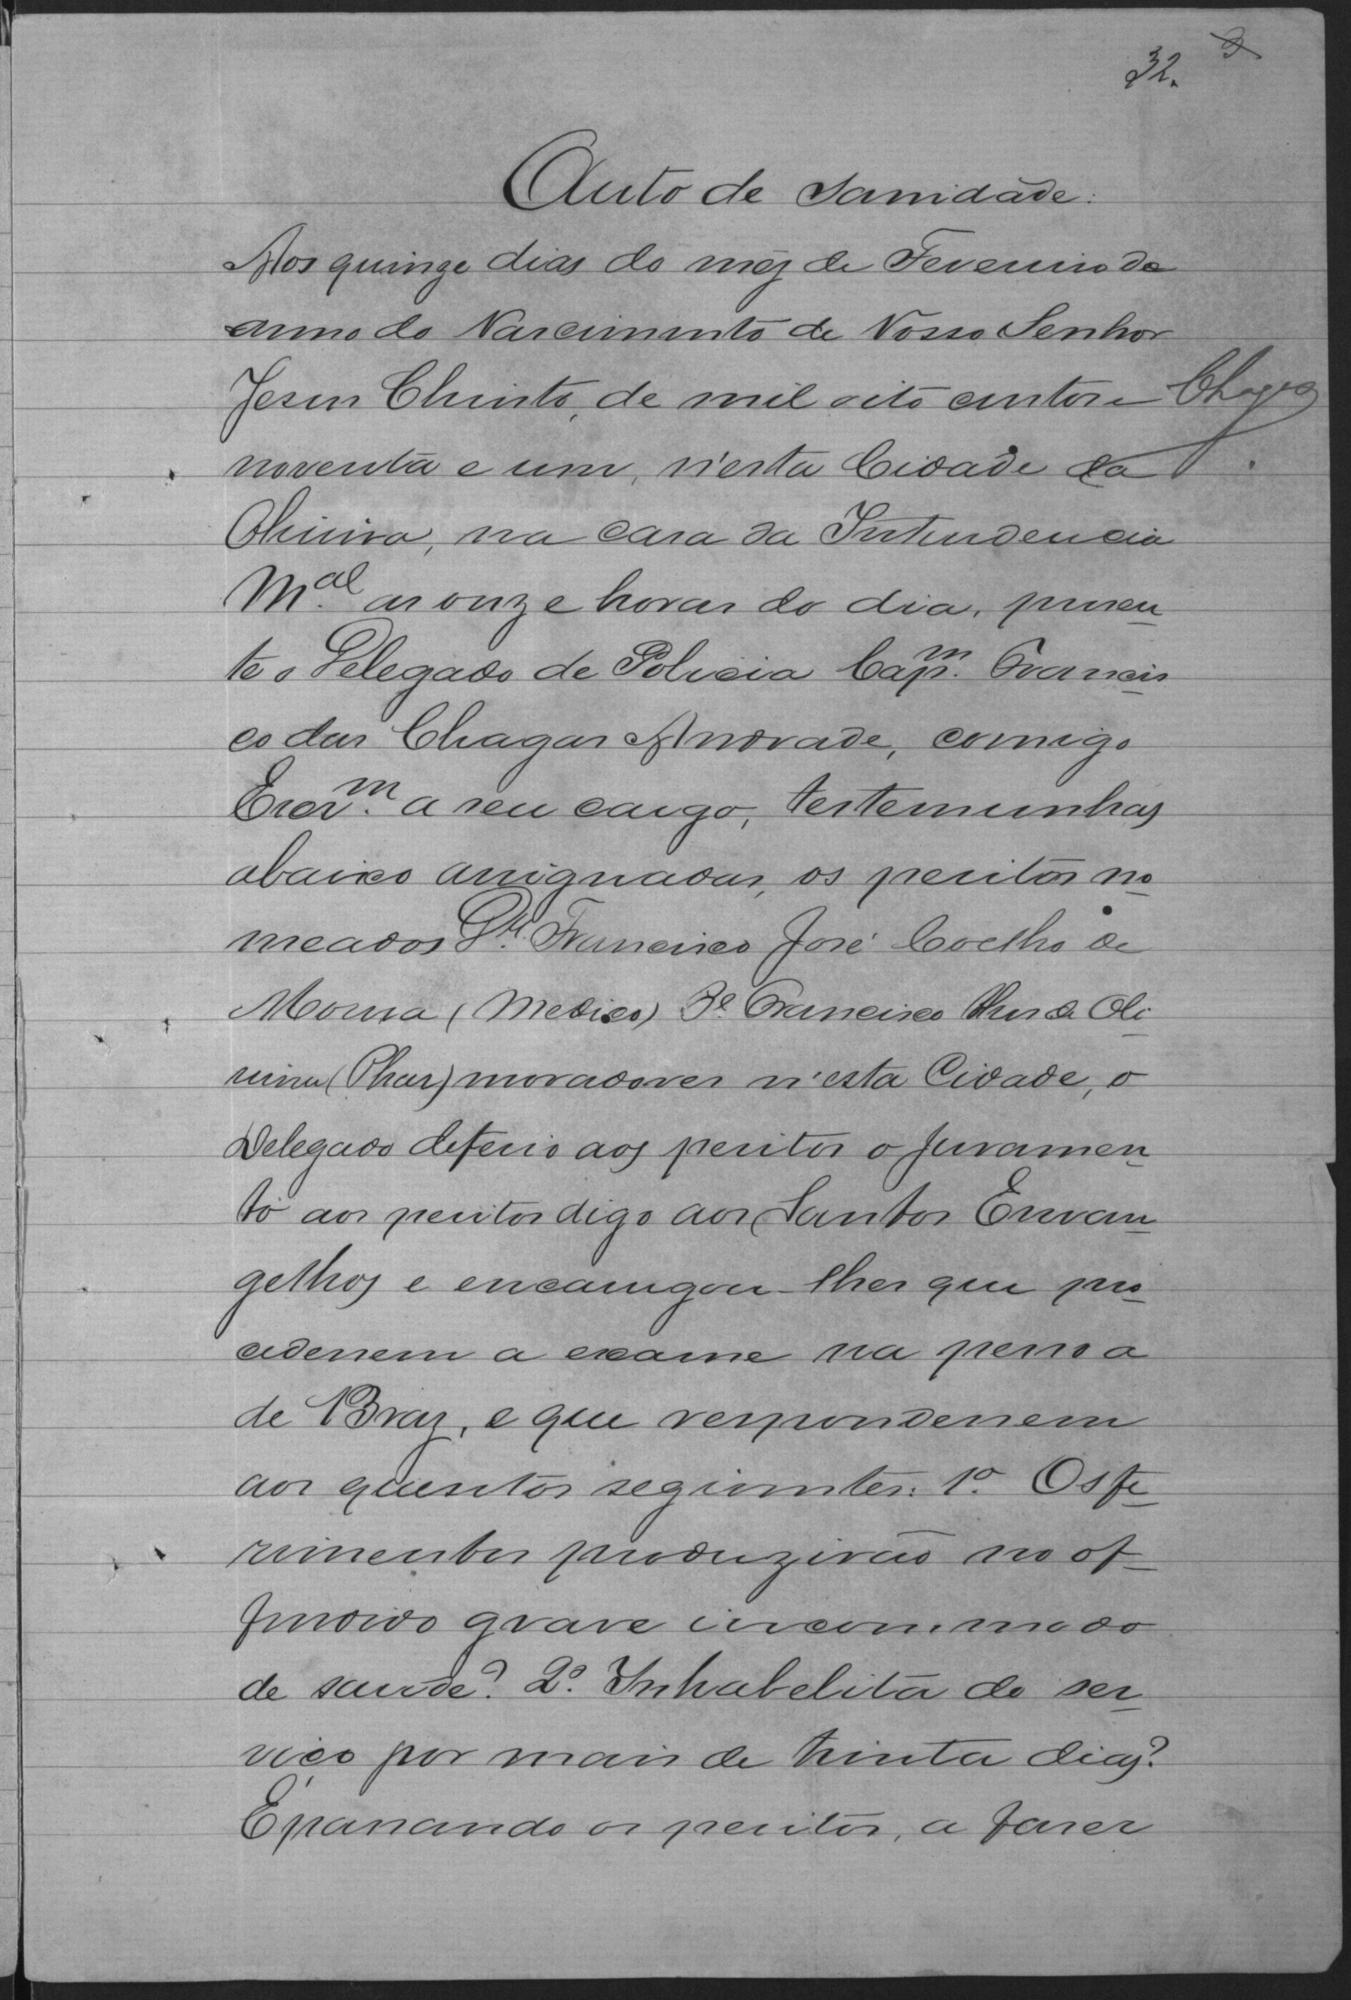 32.
Auto de Sanidade.
Aos quinze dias do mêz de Fevereiro do
anno do Nascimento de Nosso Senhor
Jesus Christo, de mil oito centos e
Chagas
noventa e um, n'esta Cidade da
na casa da Intendencia
M.al as onze horas do dia, presen
te o Delegado de Policia Cap.m Francis
co das Chagas Andrade, comigo
Escr.m a seu cargo, testemunhas
abaixo assignadas, os peritos no
meados Dr. Francisco José Coelho de
Moura (Medico) Francisco de Oli
veira (Phar) moradores n'esta Cidade, o
Delegado deferio aos peritos o juramen
to aos peritos digo aos Santos Envan
gelhos e encarregou-lhes que pro
cedessem a exame na pessoa
de Braz, e que respondessem
aos quesitos seguintes: 1º Os fe
rimentos produzirão no of
fendido grave incommodo
de saude? 2º Inhabelita do ser
viço por mais de trinta dias?
E passando os peritos, a faser